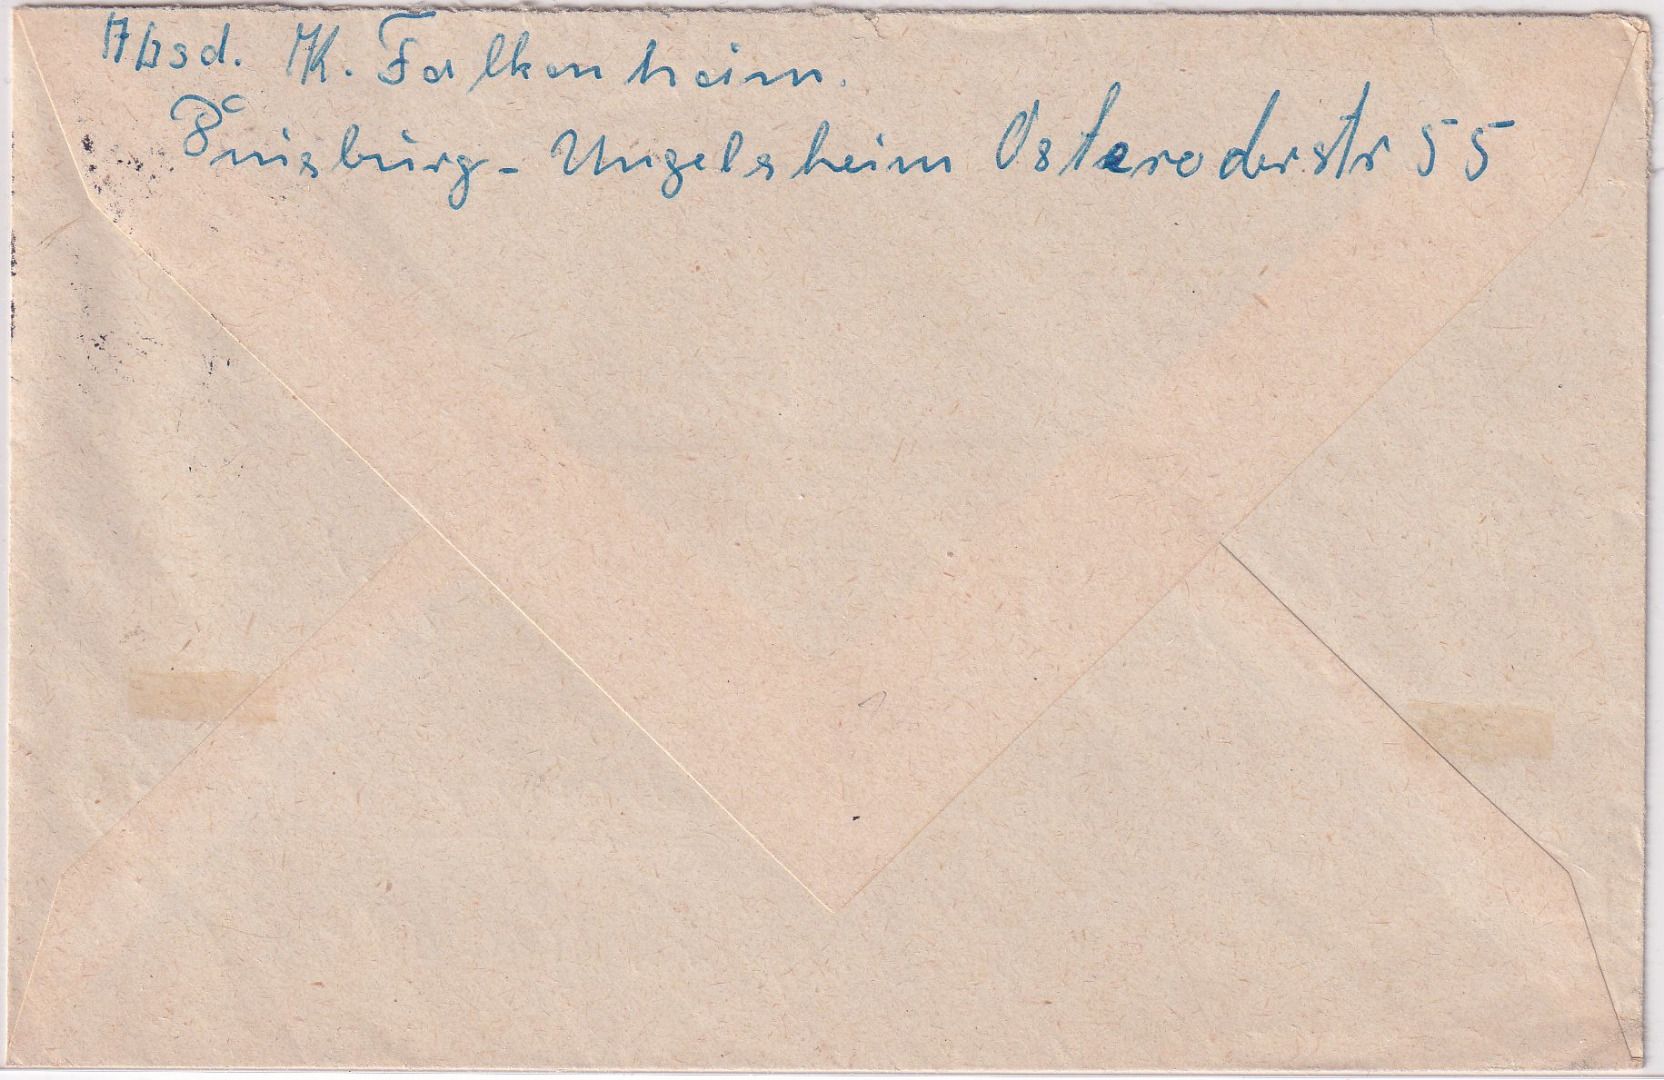 Absd. K. Falkenheim.
Duisburg - Ungelsheim Osteroderstr 55